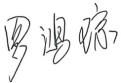 罗鸿琼